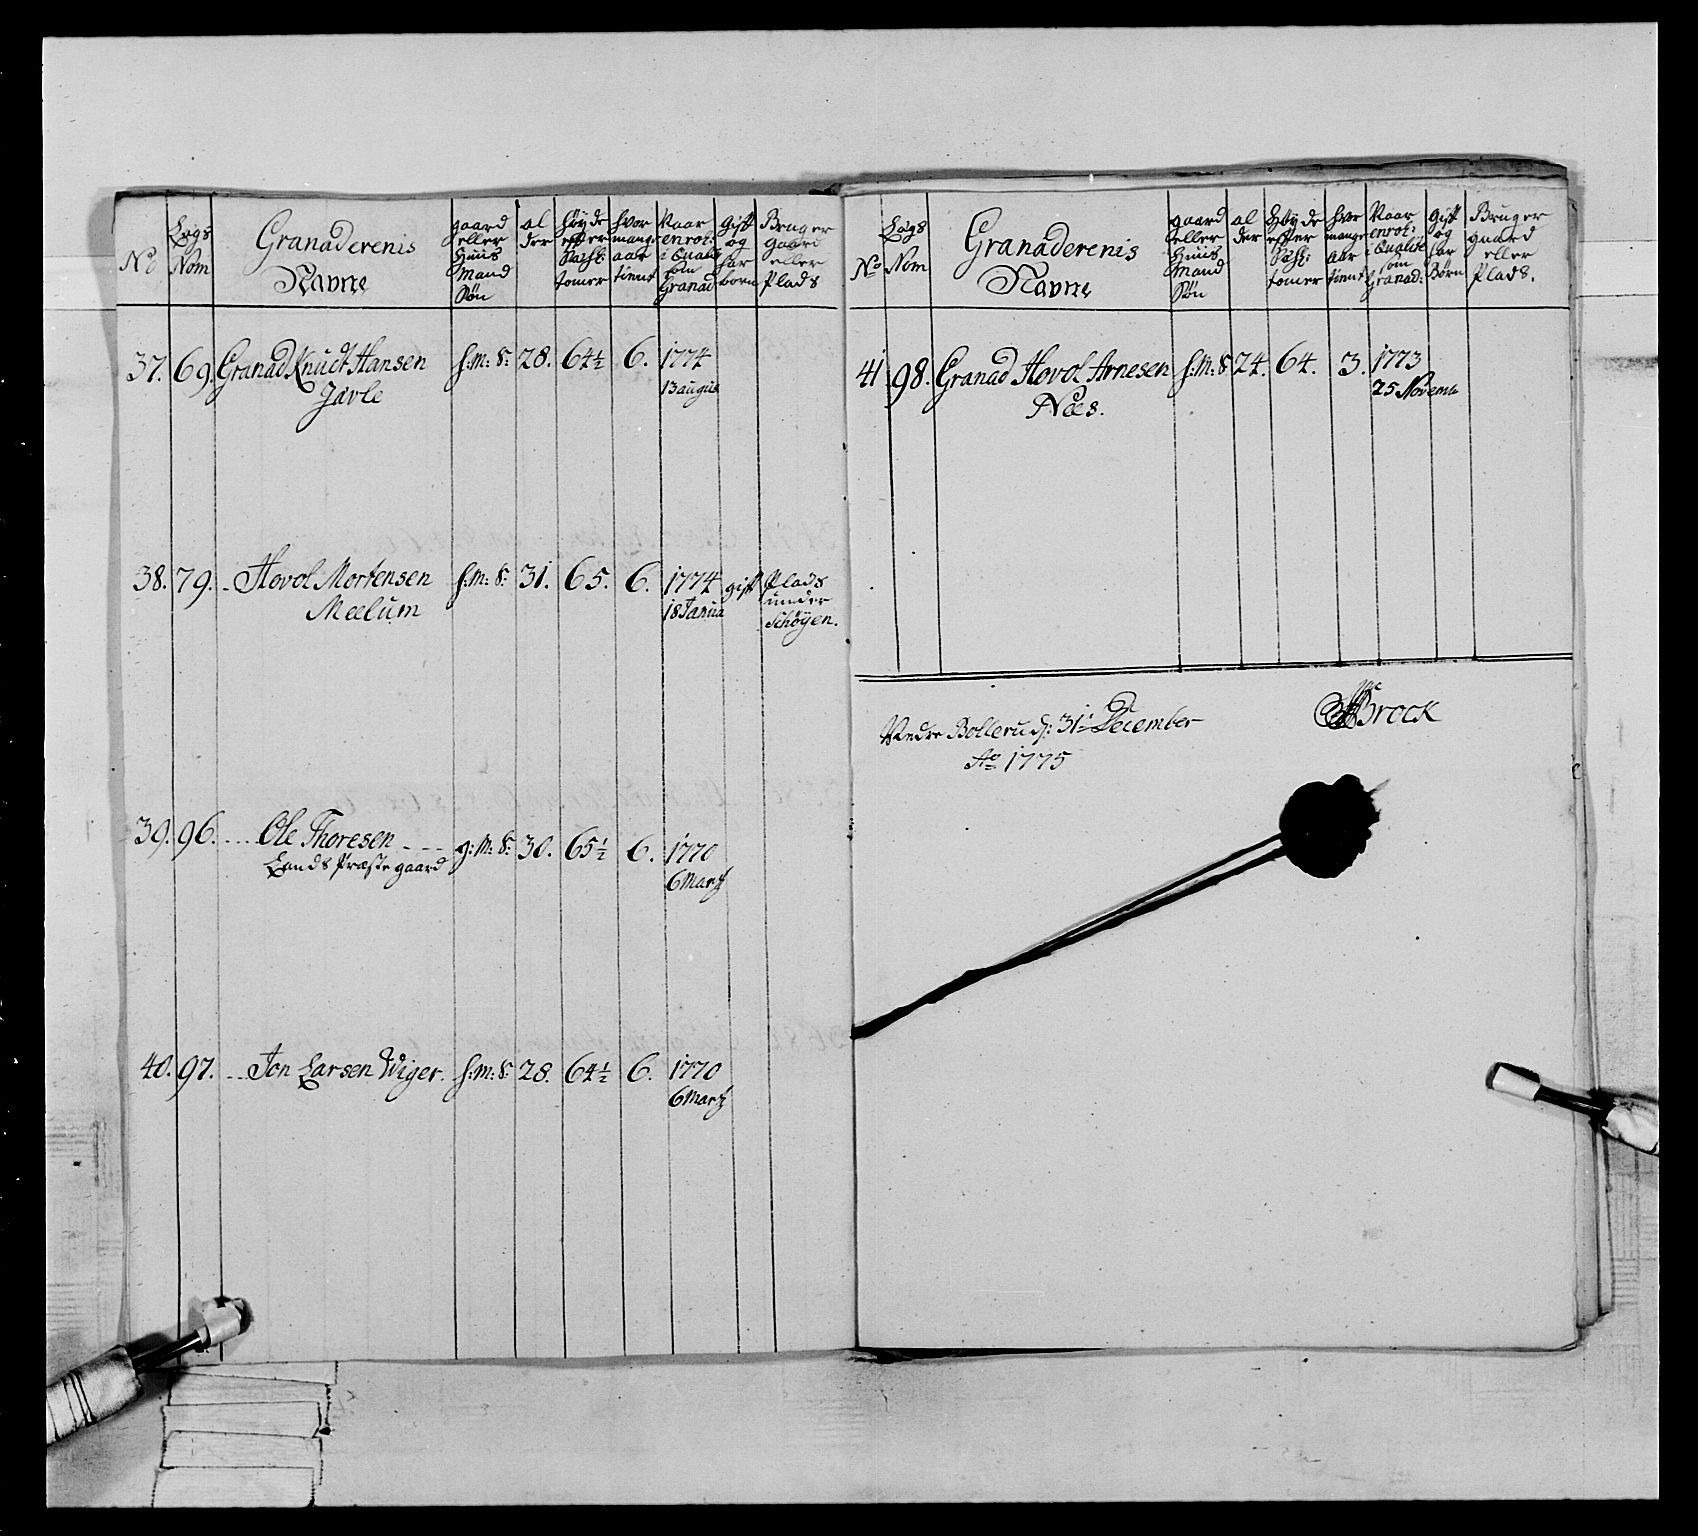 No
Lægs
Nom
Granaderenis
Navne
gaard
eller
Huus
Mand
Søn
al
der
Høyde
efter
Sachs:
tomer
hvor
mange
aar
tiennt
Naar
enrol:
i Qualit
som
Granad
Gift
og
har
born
Bruger
gaard
eller
Plads
37. 69. Granad Knudt Hansen h: m: S: 28. 64½ 6. 1774
Javle 13 augus
38. 79. Hovol Mortensen h: m: S: 31. 65. 6. 1774 gift Plads
Meelum 18 Janua under
Schøyen.
39. 96. Ole Thoresen g: M: S: 30. 65½ 6. 1770
Lands Præstegaard 6 Marti
40. 97. Jon Larsen Wiger. h: m: S: 28. 64½ 6. 1770
6 Marti
No
Lægs
Nom
Granaderenis
Navne
gaard
eller
Huus
Mand
Søn
al
der
Høyde
efter
Sachs:
tomer
hvor
mange
aar
tiennt
Naar
enrol:
i Qualite
som
Granad:
gift
og
har
Børn
Bruger
gaard
eller
Plads.
41 98. Granad Hovol Arnesen h: M: S 24. 64. 3. 1773
Næs. 25 Novemb
Nedre Bollerud d: 31t December
Ao 1775
Brock